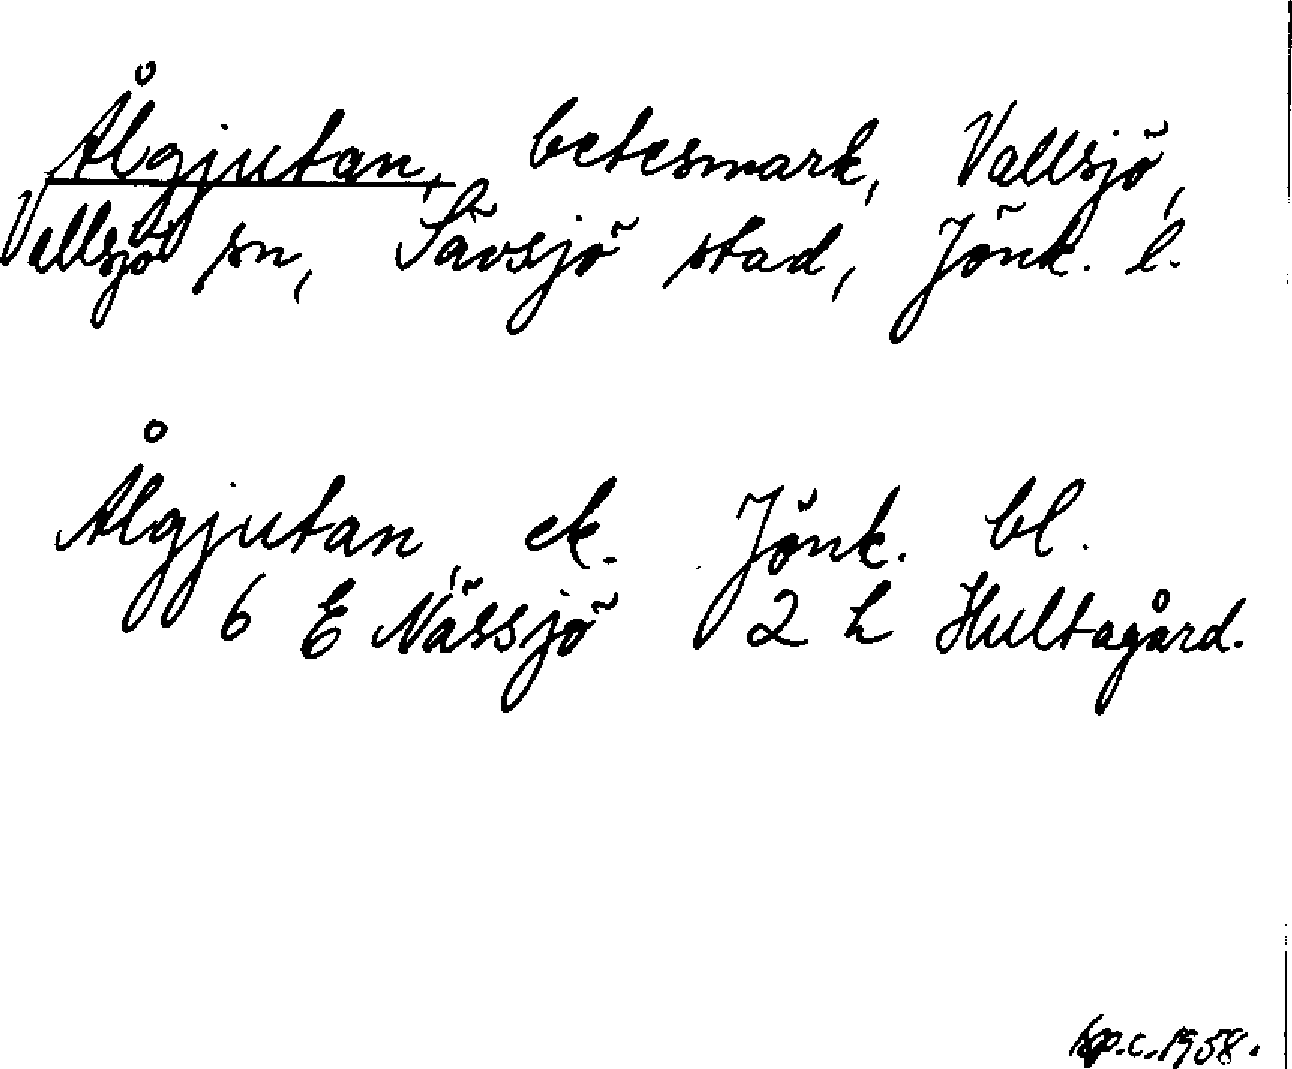 Ålgjutan, betesmark, Vallsjö,
Vallsjö sn, Sävsjö stad, Jönk. l.
Ålgjutan, ek. Jönk. bl.
6 E Nässjö 2 h Hultagård.
kp.c. 1958.